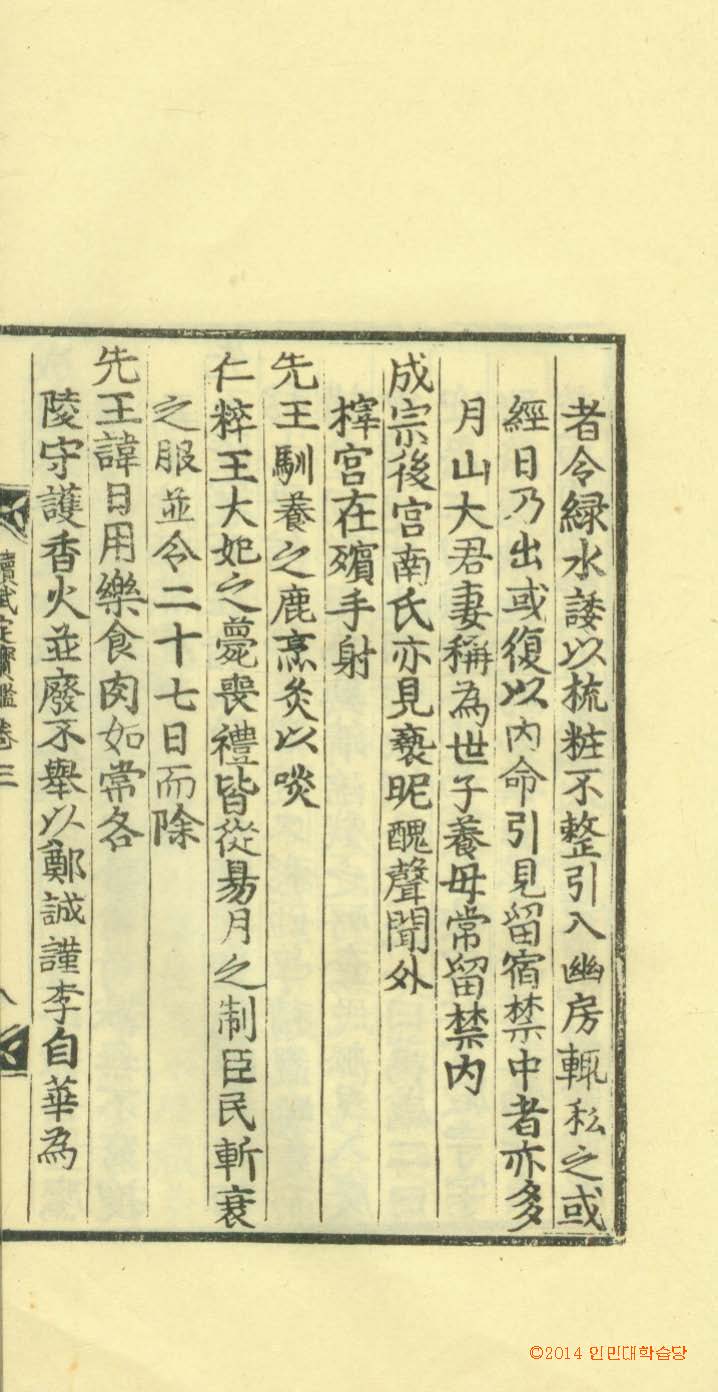 者令緑水諉以梳粧不整引入幽房輒私之或
經日乃出或復以内命引見留宿禁中者亦多
月山大君妻稱為世子養母常留禁内
成宗後宮南氏亦見褻昵醜聲聞外
梓宮在殯手射
先王馴養之鹿烹炙以啖
仁粹王大妃之薨喪禮皆從易月之制臣民斬衰
之服並令二十七日而除
先王諱日用樂食肉如常各
陵守護香火並廢不舉以鄭誠謹李自華為
續武定寶鑑卷三
八
©2014 인민대학습당